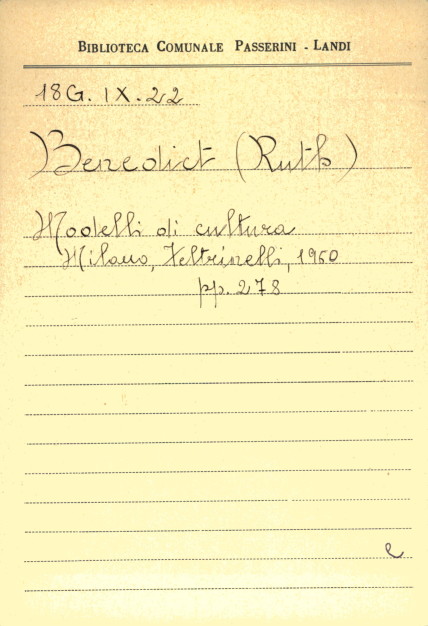 BIBLIOTECA COMUNALE PASSERINI - LANDI
18G. IX. 22
Benedict (Ruth)
Modelli di cultura
Milano, Feltrinelli, 1960
pp. 278
e